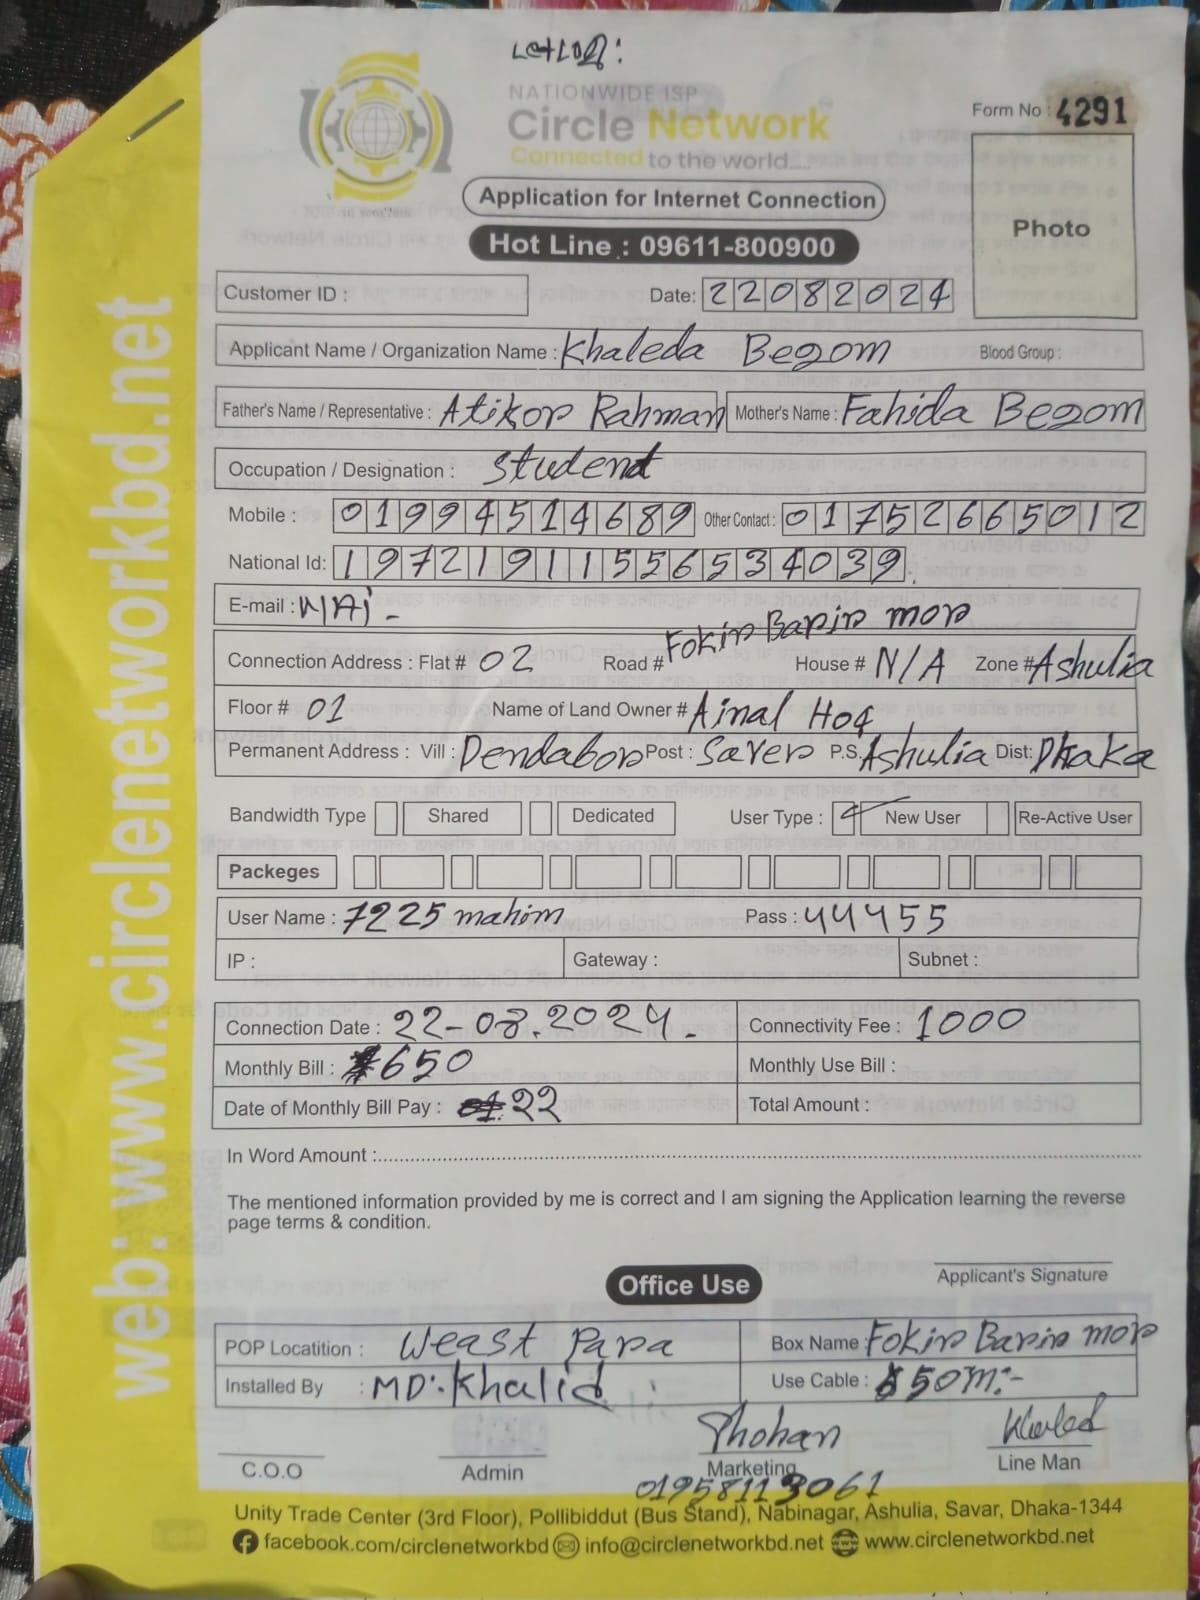 NATIONWIDE ISP
Circle Network
Connected to the world....
Form No : 4291
Photo
Application for Internet Connection
Hot Line : 09611-800900
Customer ID :
Date: 22082024
Applicant Name / Organization Name : Khaleda Begom Blood Group :
Father's Name / Representative : Atikor Rahman Mother's Name : Fahida Begom
Occupation / Designation : Student
Mobile : 01994514689 Other Contact : 01752665012
National Id: 19721911556534039
E-mail : N/A
Connection Address : Flat # 02 Road # Fokir Barir mor House # N/A Zone # Ashulia
Floor # 01 Name of Land Owner # Ainal Hoq
Permanent Address : Vill : Dendabor Post : Saver P.S. Ashulia Dist: Dhaka
Bandwidth Type Shared Dedicated User Type : New User Re-Active User
Packeges
User Name : 7225 mahim Pass : 44455
IP : Gateway : Subnet :
Connection Date : 22-08.2024. Connectivity Fee : 1000
Monthly Bill : 650 Monthly Use Bill :
Date of Monthly Bill Pay : 22 Total Amount :
In Word Amount :
The mentioned information provided by me is correct and I am signing the Application learning the reverse
page terms & condition.
Applicant's Signature
Office Use
POP Locatition : Weast Para Box Name : Fokir Barir mor
Installed By : MD. Khalid Use Cable : 50m:-
Shohan Khaled
C.O.O Admin Marketing Line Man
01958113061
Unity Trade Center (3rd Floor), Pollibiddut (Bus Stand), Nabinagar, Ashulia, Savar, Dhaka-1344
facebook.com/circlenetworkbd info@circlenetworkbd.net www.circlenetworkbd.net
web: www.circlenetworkbd.net